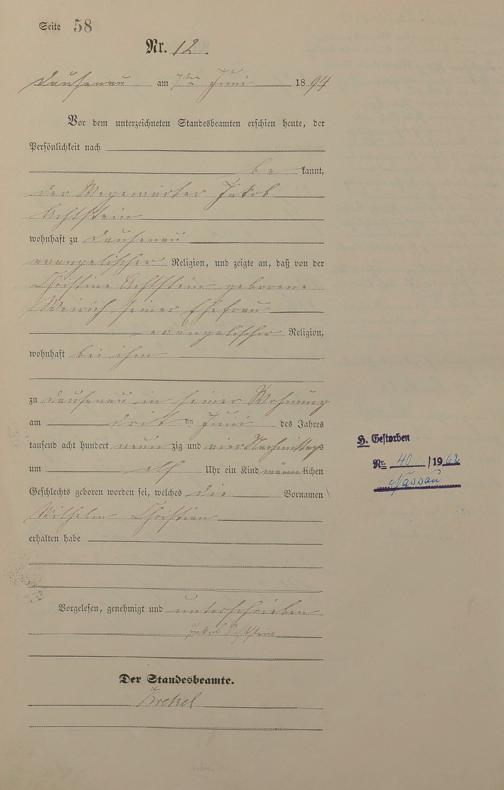 Seite 58
Nr. 12.
Dausenau am 7ten Juni 1894
Vor dem unterzeichneten Standesbeamten erschien heute, der
Persönlichkeit nach
be kannt,
der Wegewärter Jakob
wohnhaft zu Dausenau
evangelischer Religion, und zeigte an, daß von der
Christine geborene
seiner Ehefrau
evangelischer Religion,
wohnhaft bei ihm
zu Dausenau in seiner Wohnung
am Juni des Jahres
tausend acht hundert neun zig und vier Nachmittags
um elf Uhr ein Kind männlichen
Geschlechts geboren worden sei, welches die Vornamen
Wilhelm Christian
erhalten habe
Vorgelesen, genehmigt und unterschrieben
Jakob
Der Standesbeamte.
H. Gestorben
Nr. 40 /1962
Nassau